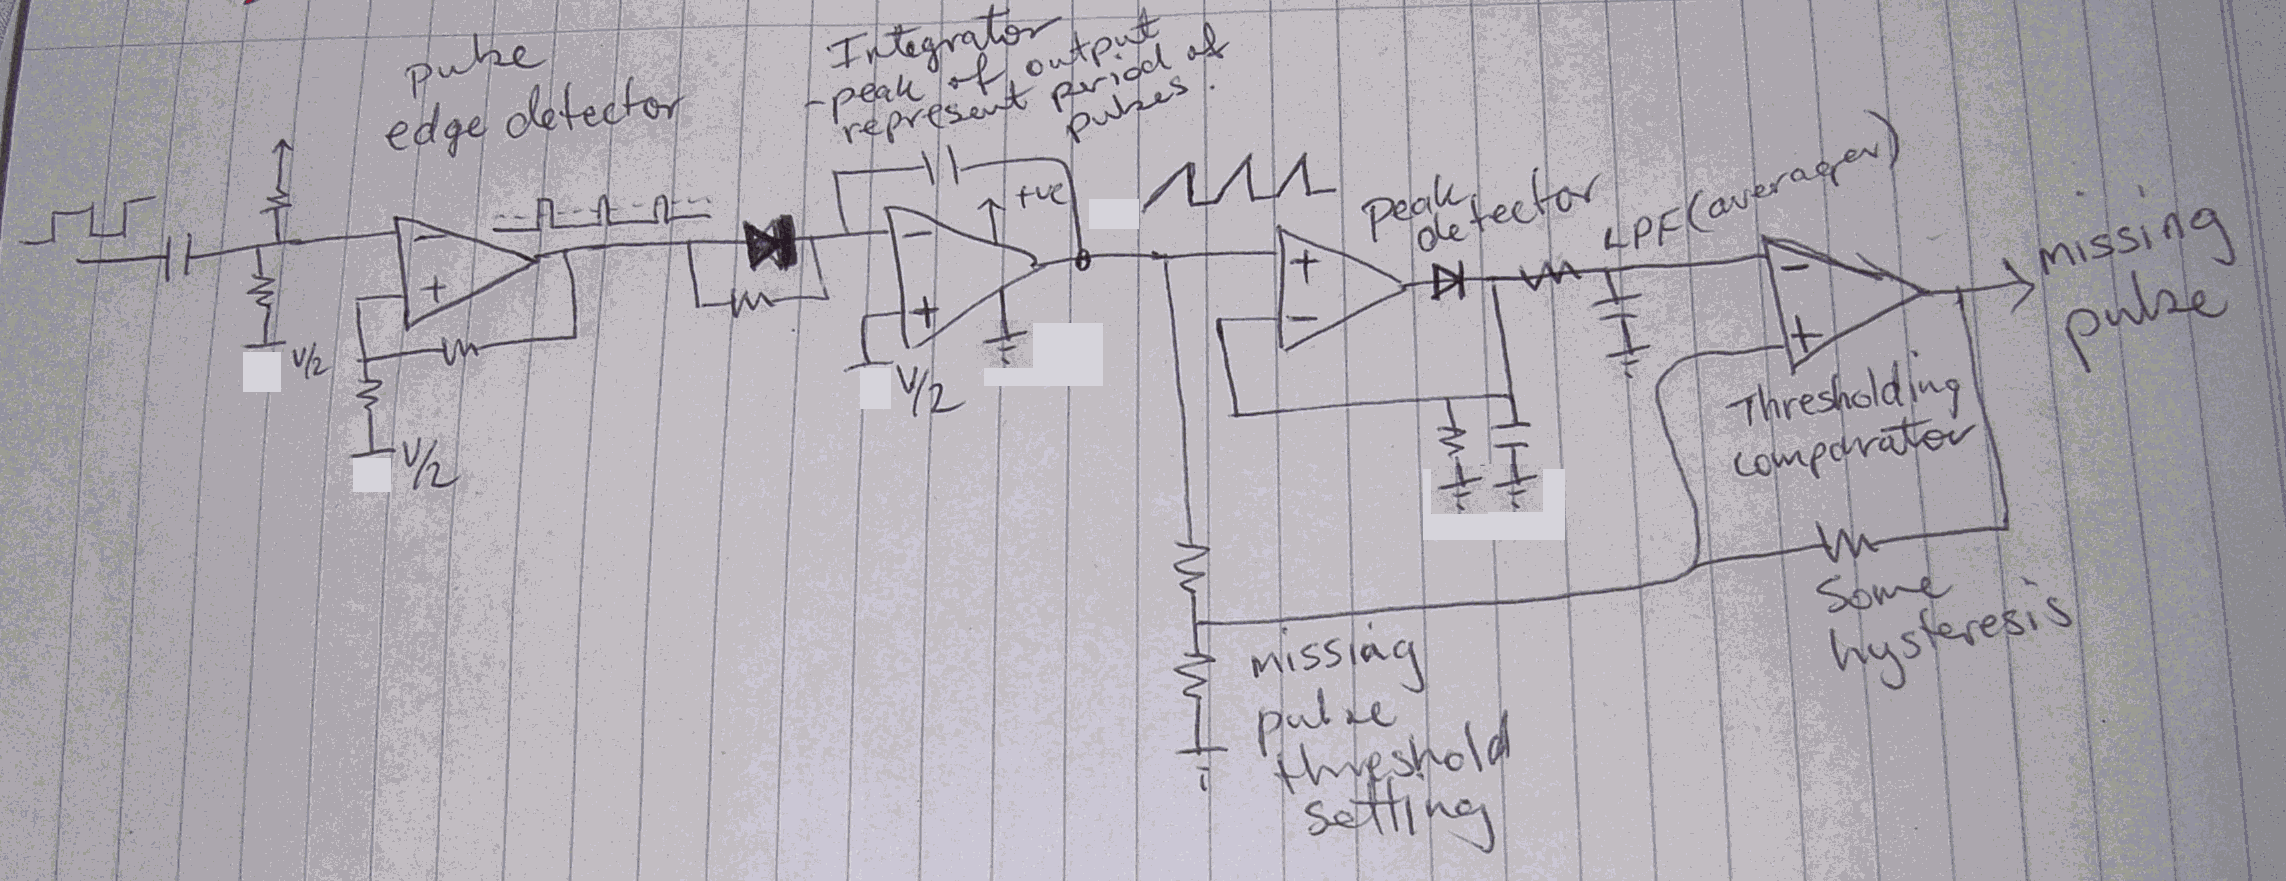 pulse
edge detector
Integrator
- peak of output
represent period of
pulses.
+ve
Peak
detector
LPF (averager)
missing
pulse
-
+
V/2
V/2
-
+
V/2
+
-
-
+
Thresholding
comparator
Some
hysteresis
missing
pulse
threshold
setting